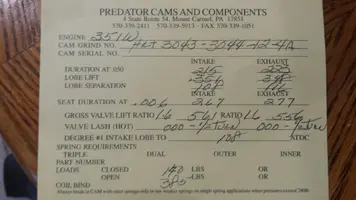 PREDATOR CAMS AND COMPONENTS
4 State Route 54, Mount Carmel, PA 17851
570-339-2411 570-339-5013 - FAX 570-339-1051
ENGINE 351W
CAM GRIND NO. 3043-3044-12-4A
CAM SERIAL NO.
INTAKE EXHAUST
DURATION AT .050 215
LOBE LIFT
LOBE SEPARATION
INTAKE EXHAUST
SEAT DURATION AT .006 267 277
GROSS VALVE LIFT RATIO 1.6 .561 RATIO 1.6 .556
VALVE LASH (HOT) .000
DEGREE #1 INTAKE LOBE TO 108 ATDC
SPRING REQUIREMENTS
TRIPLE DUAL OUTER INNER
PART NUMBER
LOADS CLOSED 140 LBS OR
OPEN LBS OR
COIL BIND